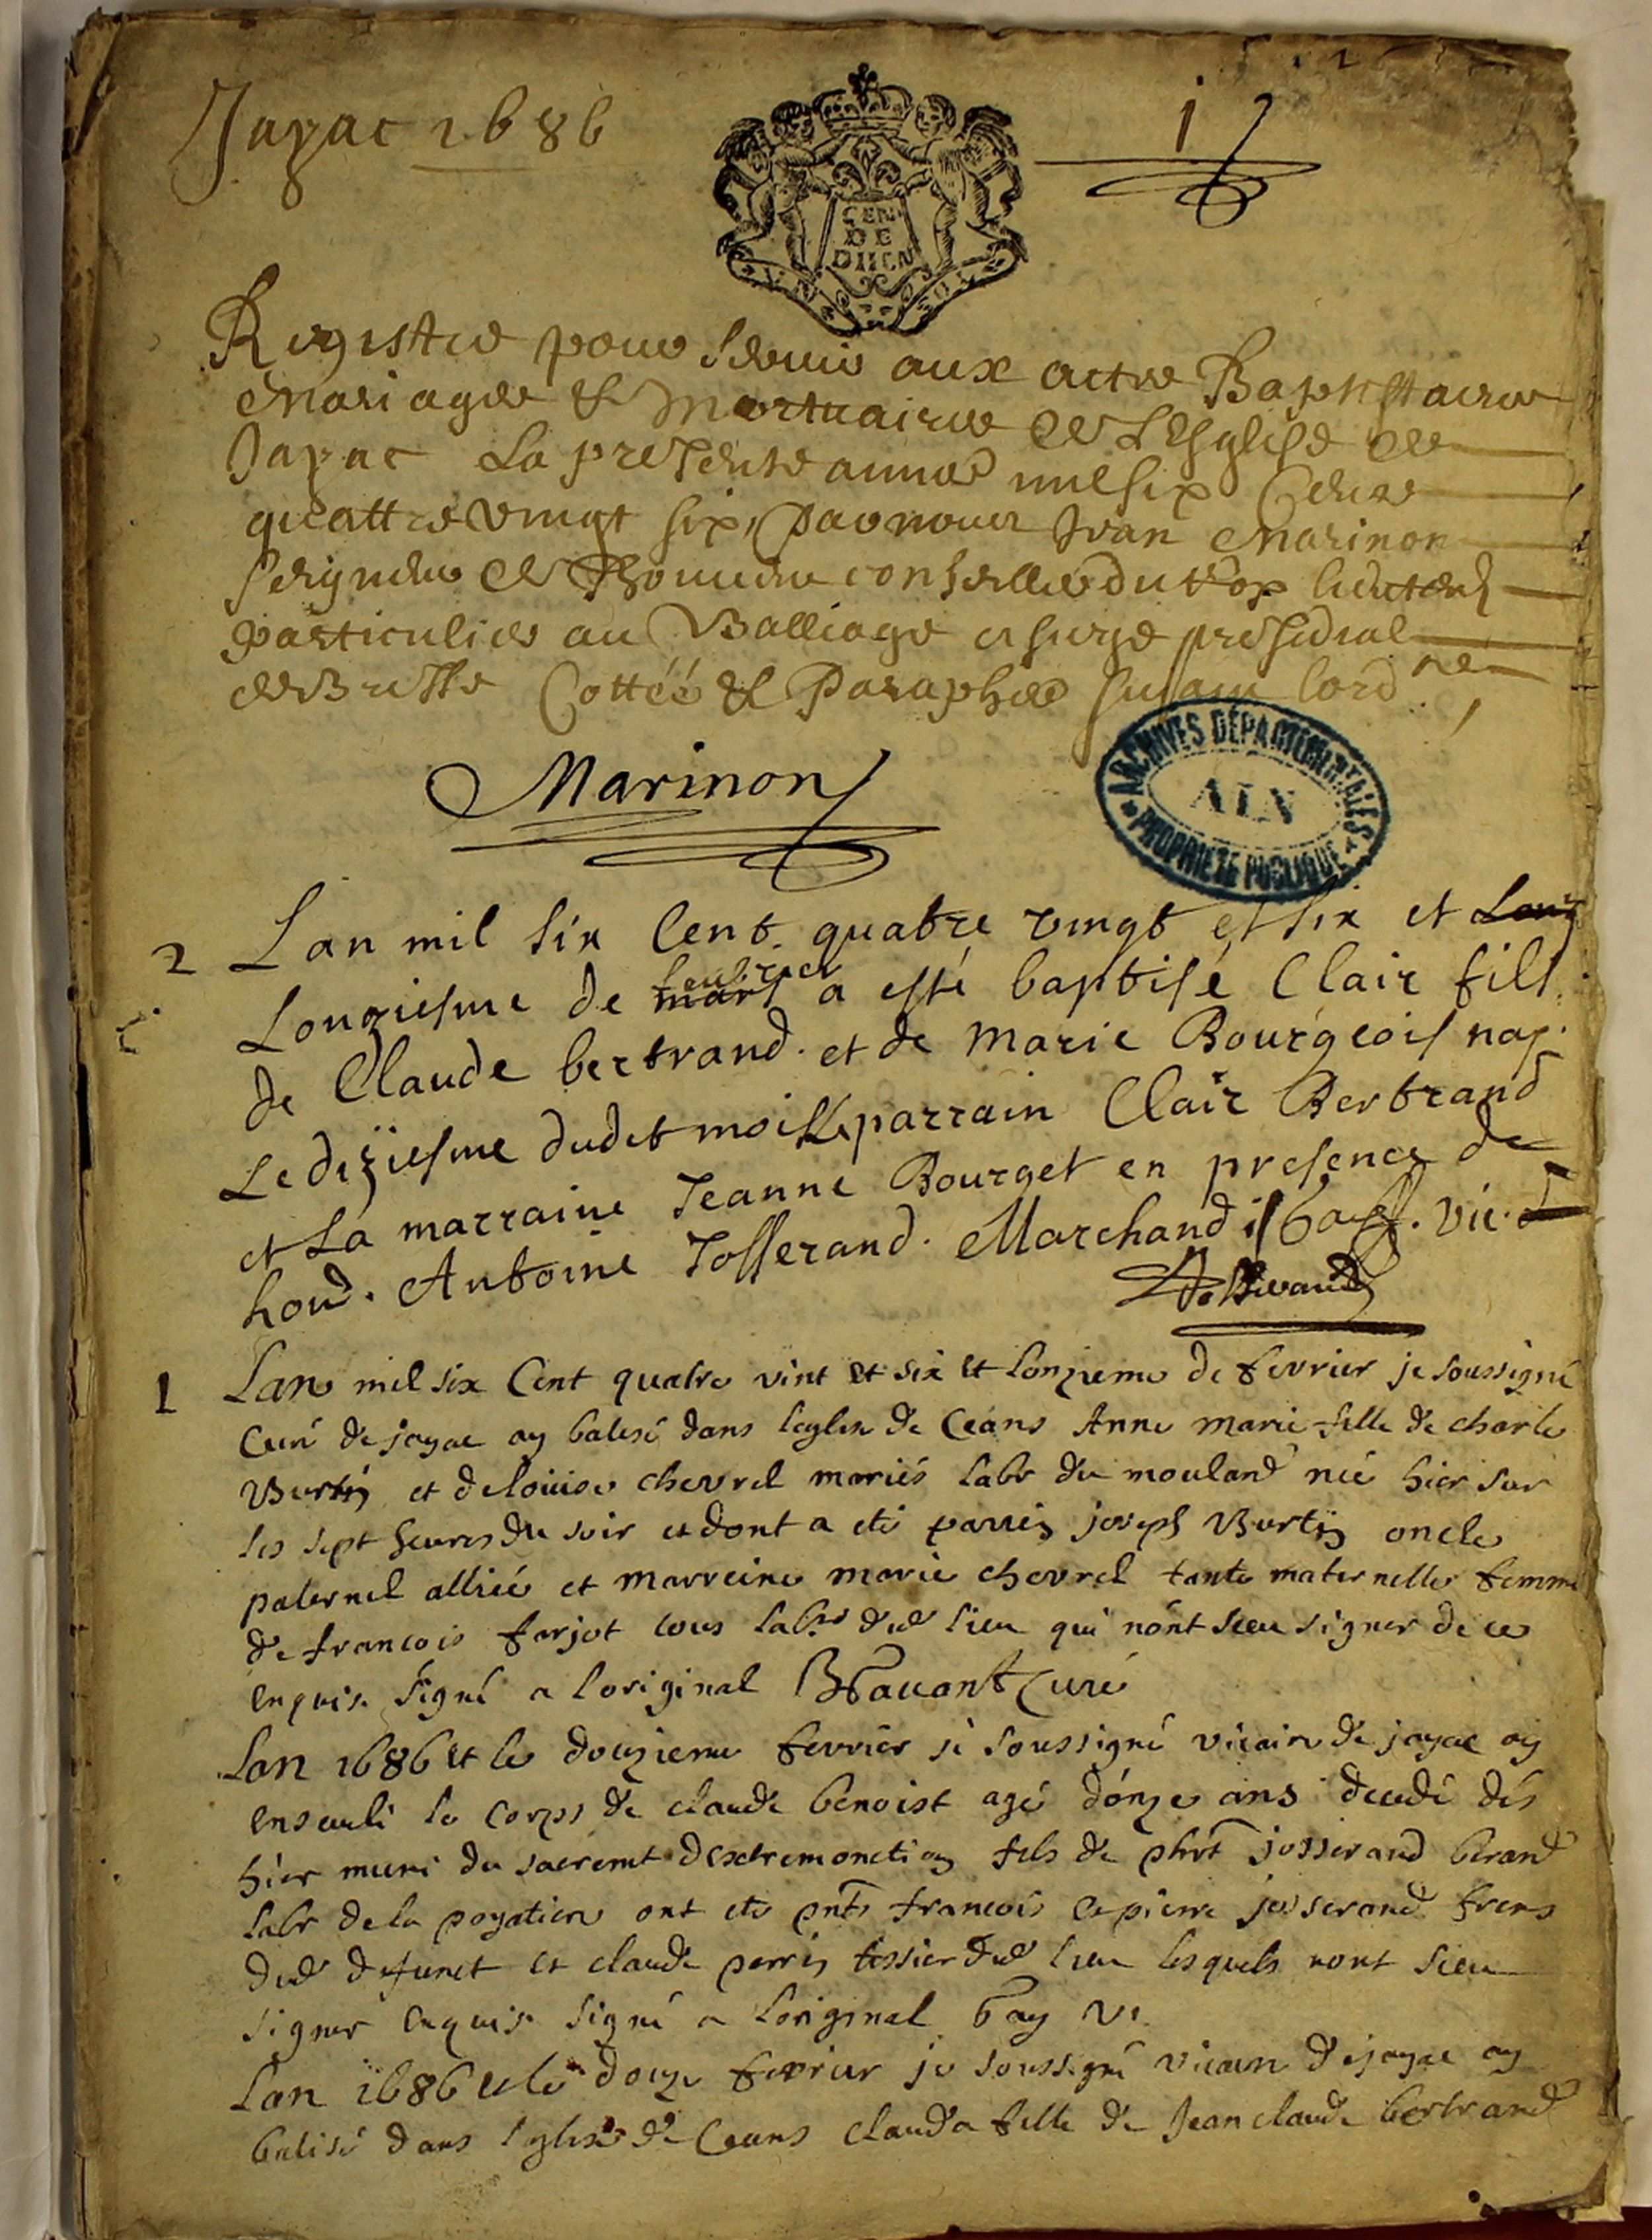 Jayac 1686
1
GEN
DE
DIION
VN SOV
Registre pour servir aux actes Baptistaires
Mariages & Mortuaires de L'Esglise de
Jayac La presente année mil six Cents
quattre vingt six, Par nous Jean Marinon
seigneur de conseiller du Roy lieuten
particulier au Balliage et siege presidial
de Bresse Cottéé & Paraphée suivant lord ne
Marinon
ARCHIVES DÉPARTEMENTALES
AIN
PROPRIÉTÉ PUBLIQUE
2 Lan mil six Cent. quatre vingt et six et Lonz
feubvrier
Lonziesme de mars a esté baptisé Clair fils
de Claude bertrand. et de Marie Bourgeois nay.
Le diziesme dudit mois Le parrain Clair Bertrand
et La marraine Jeanne Bourget en presence de
hon. Antoine Josserand. Marchand Bay. vic.
Josserand
1 Lan mil six Cent quatre vint et six et lonzieme de fevrier je soussigné
Curé de jayac ay batisé dans leglise de Ceans Anne Marie fille de charle
Burtin et de loüise chevrel mariés labr du mouland née hier sur
les sept heures du soir et dont a eté parrein joseph Burtin oncle
paternel allié et marreine marie chevrel tante maternelle femme
de francois farjot tous labrs dud lieu qui nónt sceu signer de ce
enquis. signé a loriginal Bravant Curé
Lan 1686 et le douzieme fevrier je soussigné vicaire de jayac ay
enseveli le corps de claude benoist agé dónze ans decedé dés
hier muni du sacremt dextremonction fils de phrt josserand berand
labr de la poyatiere ont eté pnts francois et pierre josserand freres
dud defunct et claude perrin tessier dud lieu lesquels nont sceu
signer enquis. signé a loriginal Bay vi.
Lan 1686 et le douze fevrier je soussigné vicaire de jayac ay
batisé dans leglise de Ceans clauda fille de Jean claude bertrand